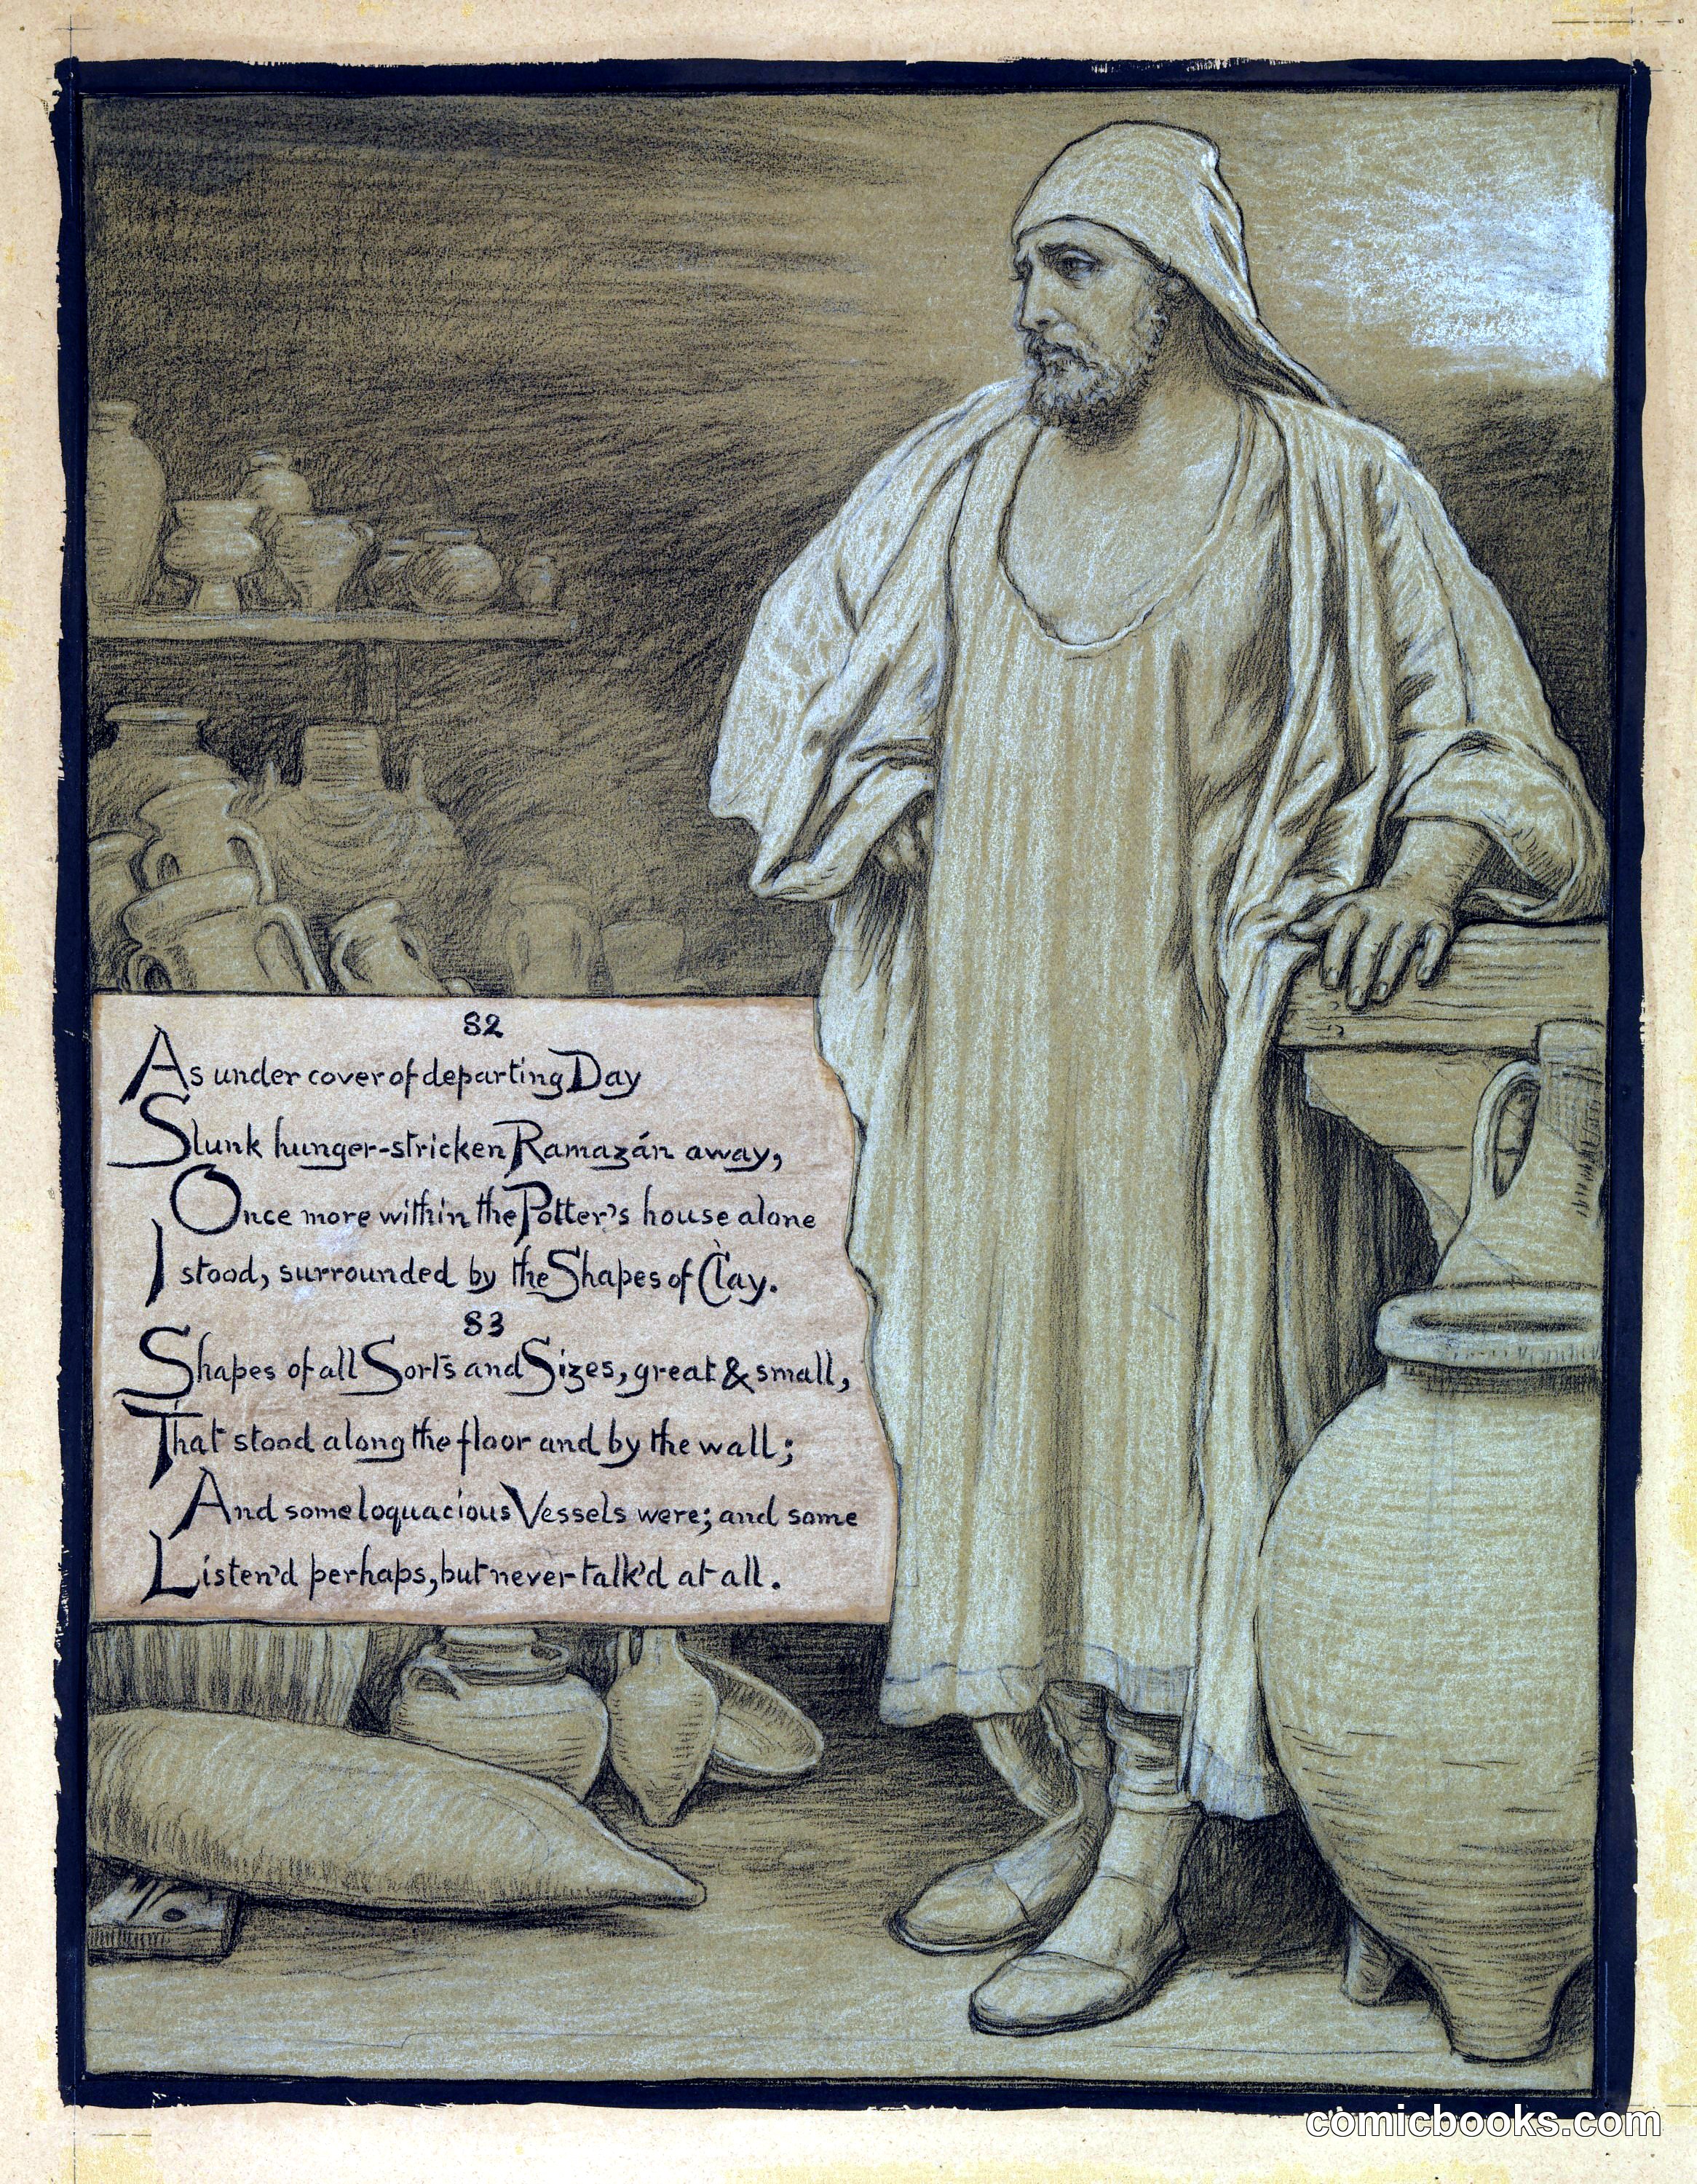 82
As under cover of departing Day
Slunk hunger-stricken Ramazán away,
Once more within the Potter's house alone
I stood, surrounded by the Shapes of Clay.
83
Shapes of all Sorts and Sizes, great & small,
That stood along the floor and by the wall;
And some loquacious Vessels were; and some
Listen'd perhaps, but never talk'd at all.
comicbooks.com